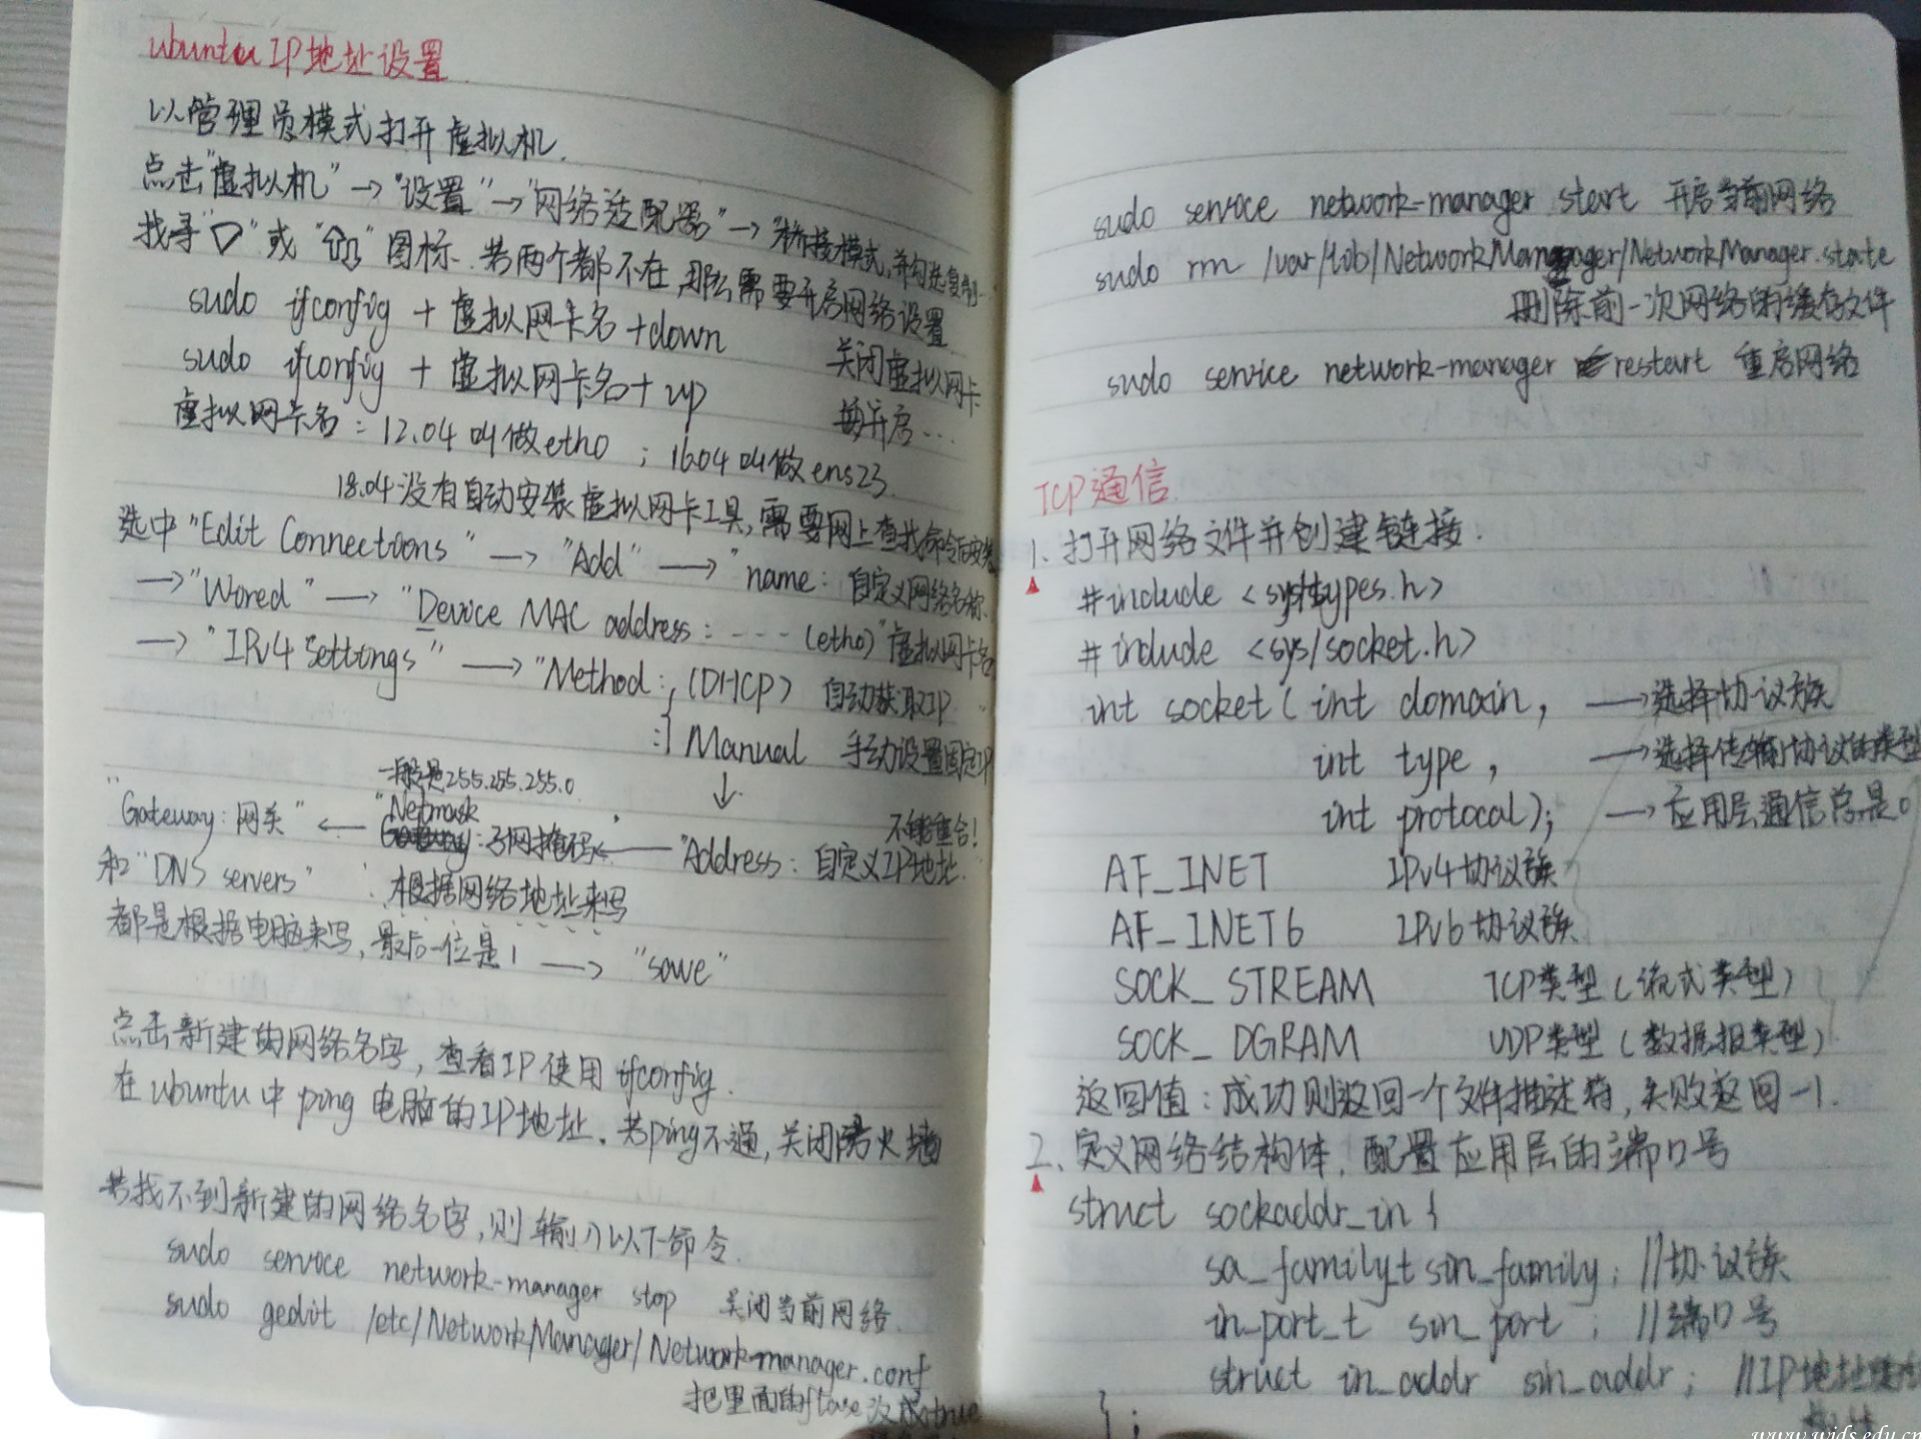 ubuntu IP地址设置
以管理员模式打开虚拟机.
点击"虚拟机"→"设置"→"网络适配器"→"桥接模式,并勾选复制
找寻" "或" "图标.若两个都不在,那么需要开启网络设置
sudo ifconfig + 虚拟网卡名 + down 关闭虚拟网卡
sudo ifconfig + 虚拟网卡名 + up 再开启...
虚拟网卡名:12.04叫做eth0;16.04叫做ens33
18.04没有自动安装虚拟网卡工具,需要网上查找命令后安装
选中"Edit Connections"→"Add"→"name:自定义网络名称
→"Wired"→"Device MAC address:---(eth0)"虚拟网卡名
→"IPv4 Settings"→"Method:{(DHCP) 自动获取IP
Manual 手动设置固定IP
↓
一般是255.255.255.0
"Gateway:网关"←"Netmask:子网掩码"←"Address:自定义IP地址 不能重合!
和"DNS servers" 根据网络地址来写
都是根据电脑来写,最后一位是1→"save"
点击新建的网络名字,查看IP使用ifconfig.
在ubuntu中ping电脑的IP地址.若ping不通,关闭防火墙
若找不到新建的网络名字,则输入以下命令.
sudo service network-manager stop 关闭当前网络
sudo gedit /etc/NetworkManager/Network-manager.conf
把里面的flase改成true
sudo service network-manager start 开启当前网络
sudo rm /var/lib/NetworkManager/NetworkManager.state
删除前一次网络的缓存文件
sudo service network-manager restart 重启网络
TCP通信
1、打开网络文件并创建链接.
#include <sys/types.h>
#include <sys/socket.h>
int socket(int domain, →选择协议族
int type, →选择传输协议的类型
int protocal); →应用层通信总是0
AF_INET IPv4协议族
AF_INET6 IPv6协议族
SOCK_STREAM TCP类型(流式类型)
SOCK_DGRAM UDP类型(数据报类型)
返回值:成功则返回一个文件描述符,失败返回-1.
2、定义网络结构体,配置应用层的端口号
struct sockaddr_in {
sa_family_t sin_family; //协议族
in_port_t sin_port; //端口号
struct in_addr sin_addr; //IP地址
};